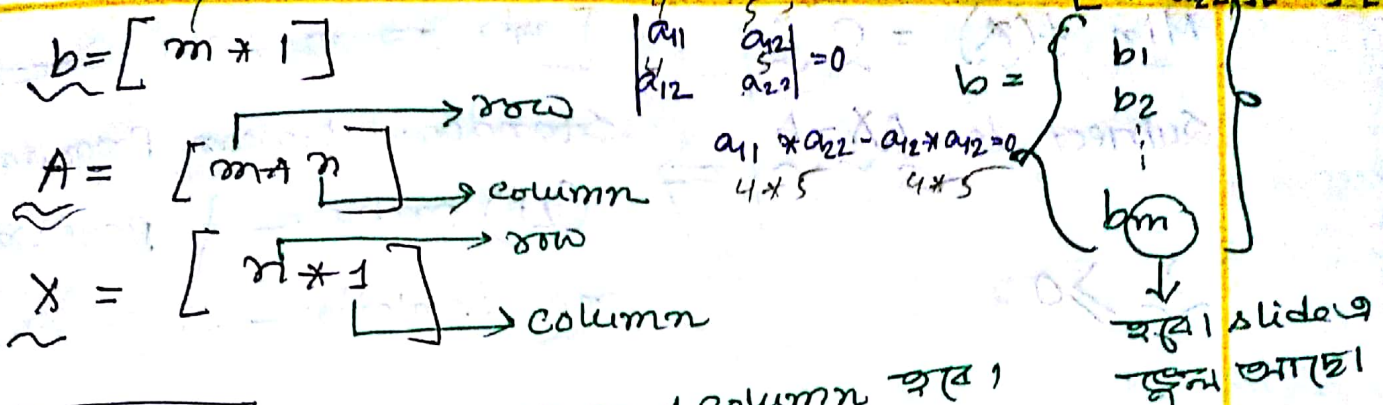 b = [ m * 1 ]
A = [ m * n ]
row
column
X = [ n * 1 ]
row
column
| a11 a12 |
| a12 a22 | = 0
4 5
4 5
a11 * a22 - a12 * a12 = 0
4 * 5 4 * 5
b = { b1
b2
⋮
bm }
হবে। slide এ
ভুল আছে।
column হবে।